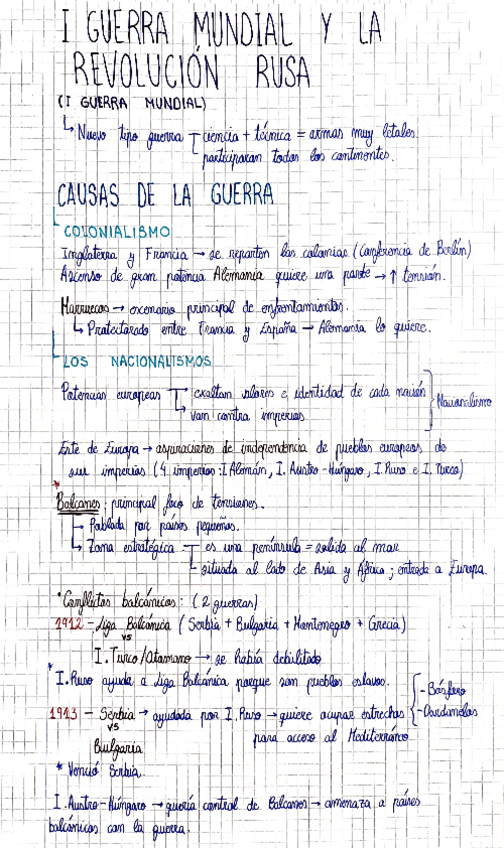 I GUERRA MUNDIAL Y LA
REVOLUCIÓN RUSA
(I GUERRA MUNDIAL)
↳ Nuevo tipo guerra ciencia + técnica = armas muy letales.
participaran todos los continentes.
CAUSAS DE LA GUERRA
COLONIALISMO
Inglaterra y Francia → se reparten las colonias (Conferencia de Berlín)
Ascenso de gran potencia Alemania quiere una parte → ↑ tensión.
Marruecos → escenario principal de enfrentamientos.
↳ Protectorado entre Francia y España → Alemania lo quiere.
LOS NACIONALISMOS
Potencias europeas → exaltam valores e identidad de cada nación
↳ vam contra imperios
Nacionalismo
Este de Europa → aspiraciones de independencia de pueblos europeos de
sus imperios (4 imperios: I. Alemán, I. Austro-Húngaro, I. Ruso e I. Turco)
* Balcanes: principal foco de tensiones.
→ Poblada por países pequeños.
↳ Zona estratégica → es una península = salida al mar
situada al lado de Asia y África; entrada a Europa.
* Conflictos balcánicos: (2 guerras)
1912 - Liga Balcánica (Serbia + Bulgaria + Montenegro + Grecia)
vs
I. Turco/otomano → se había debilitado
* I. Ruso ayuda a Liga Balcánica porque son pueblos eslavos.
1913 - Serbia → ayudada por I. Ruso → quiere ocupar estrechos
- Bósforo
- Dardanelos
vs para acceso al Mediterráneo
Bulgaria
* Venció Serbia.
I. Austro-Húngaro → quería control de Balcanes → amenaza a países
balcánicos con la guerra.